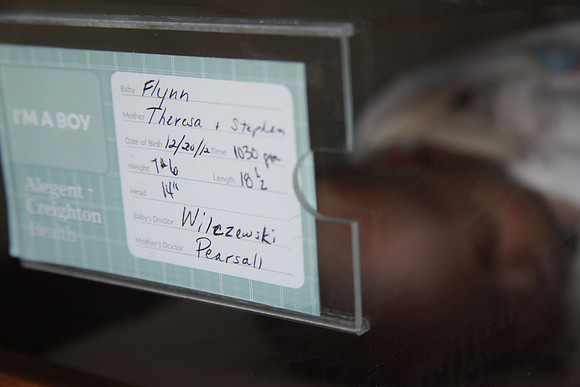 I'M A BOY
Alegent +
Creighton
Health
Baby Flynn
Mother Theresa + Stephen
Date of Birth 12/20/12 Time 1030 pm
Weight 7-6 Length 18 1/2
Head 14"
Baby's Doctor Wilczewski
Mother's Doctor Pearsall